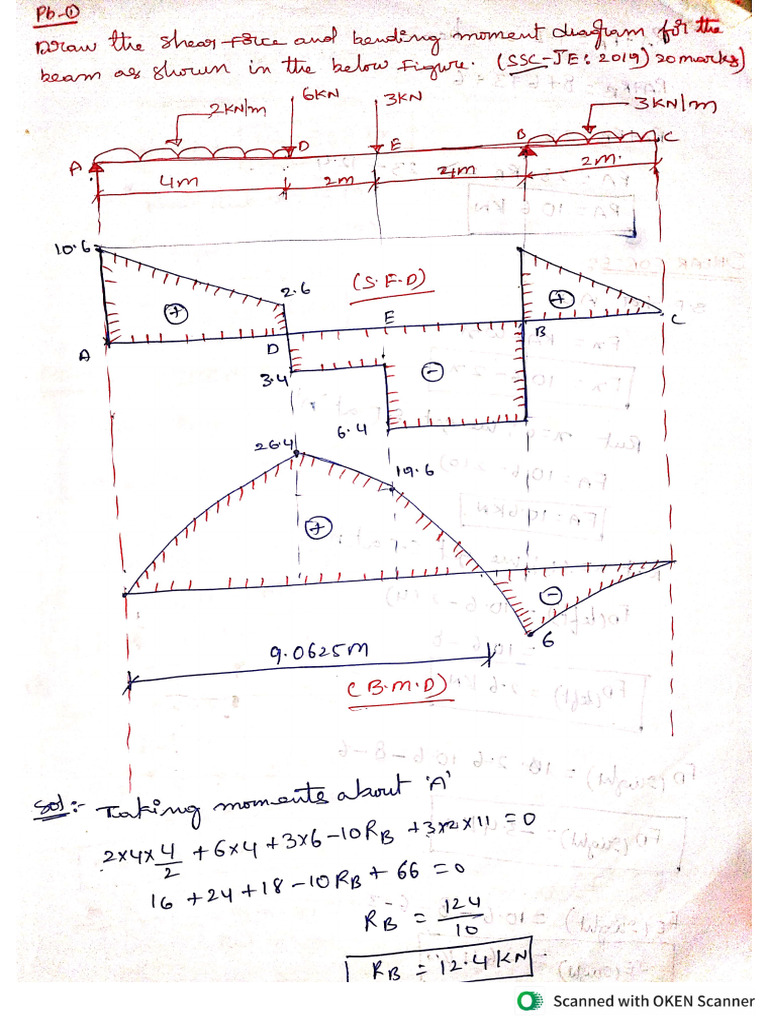 Pb-①
Draw the shear-force and bending moment diagram for the
beam as shown in the below figure. (SSC-JE: 2019) 20 marks)
2KN/m 6KN 3KN 3KN/m
A D E B C
4m 2m 4m 2m.
10.6
2.6 (S.F.D)
+ E +
A D B C
3.4 -
6.4
26.4
19.6
+
-
6
9.0625m
(B.M.D)
Sol:- Taking moments about 'A'
2×4×4/2 + 6×4 + 3×6 - 10RB + 3×2×11 = 0
16 + 24 + 18 - 10RB + 66 = 0
RB = 124/10
RB = 12.4 KN
Scanned with OKEN Scanner